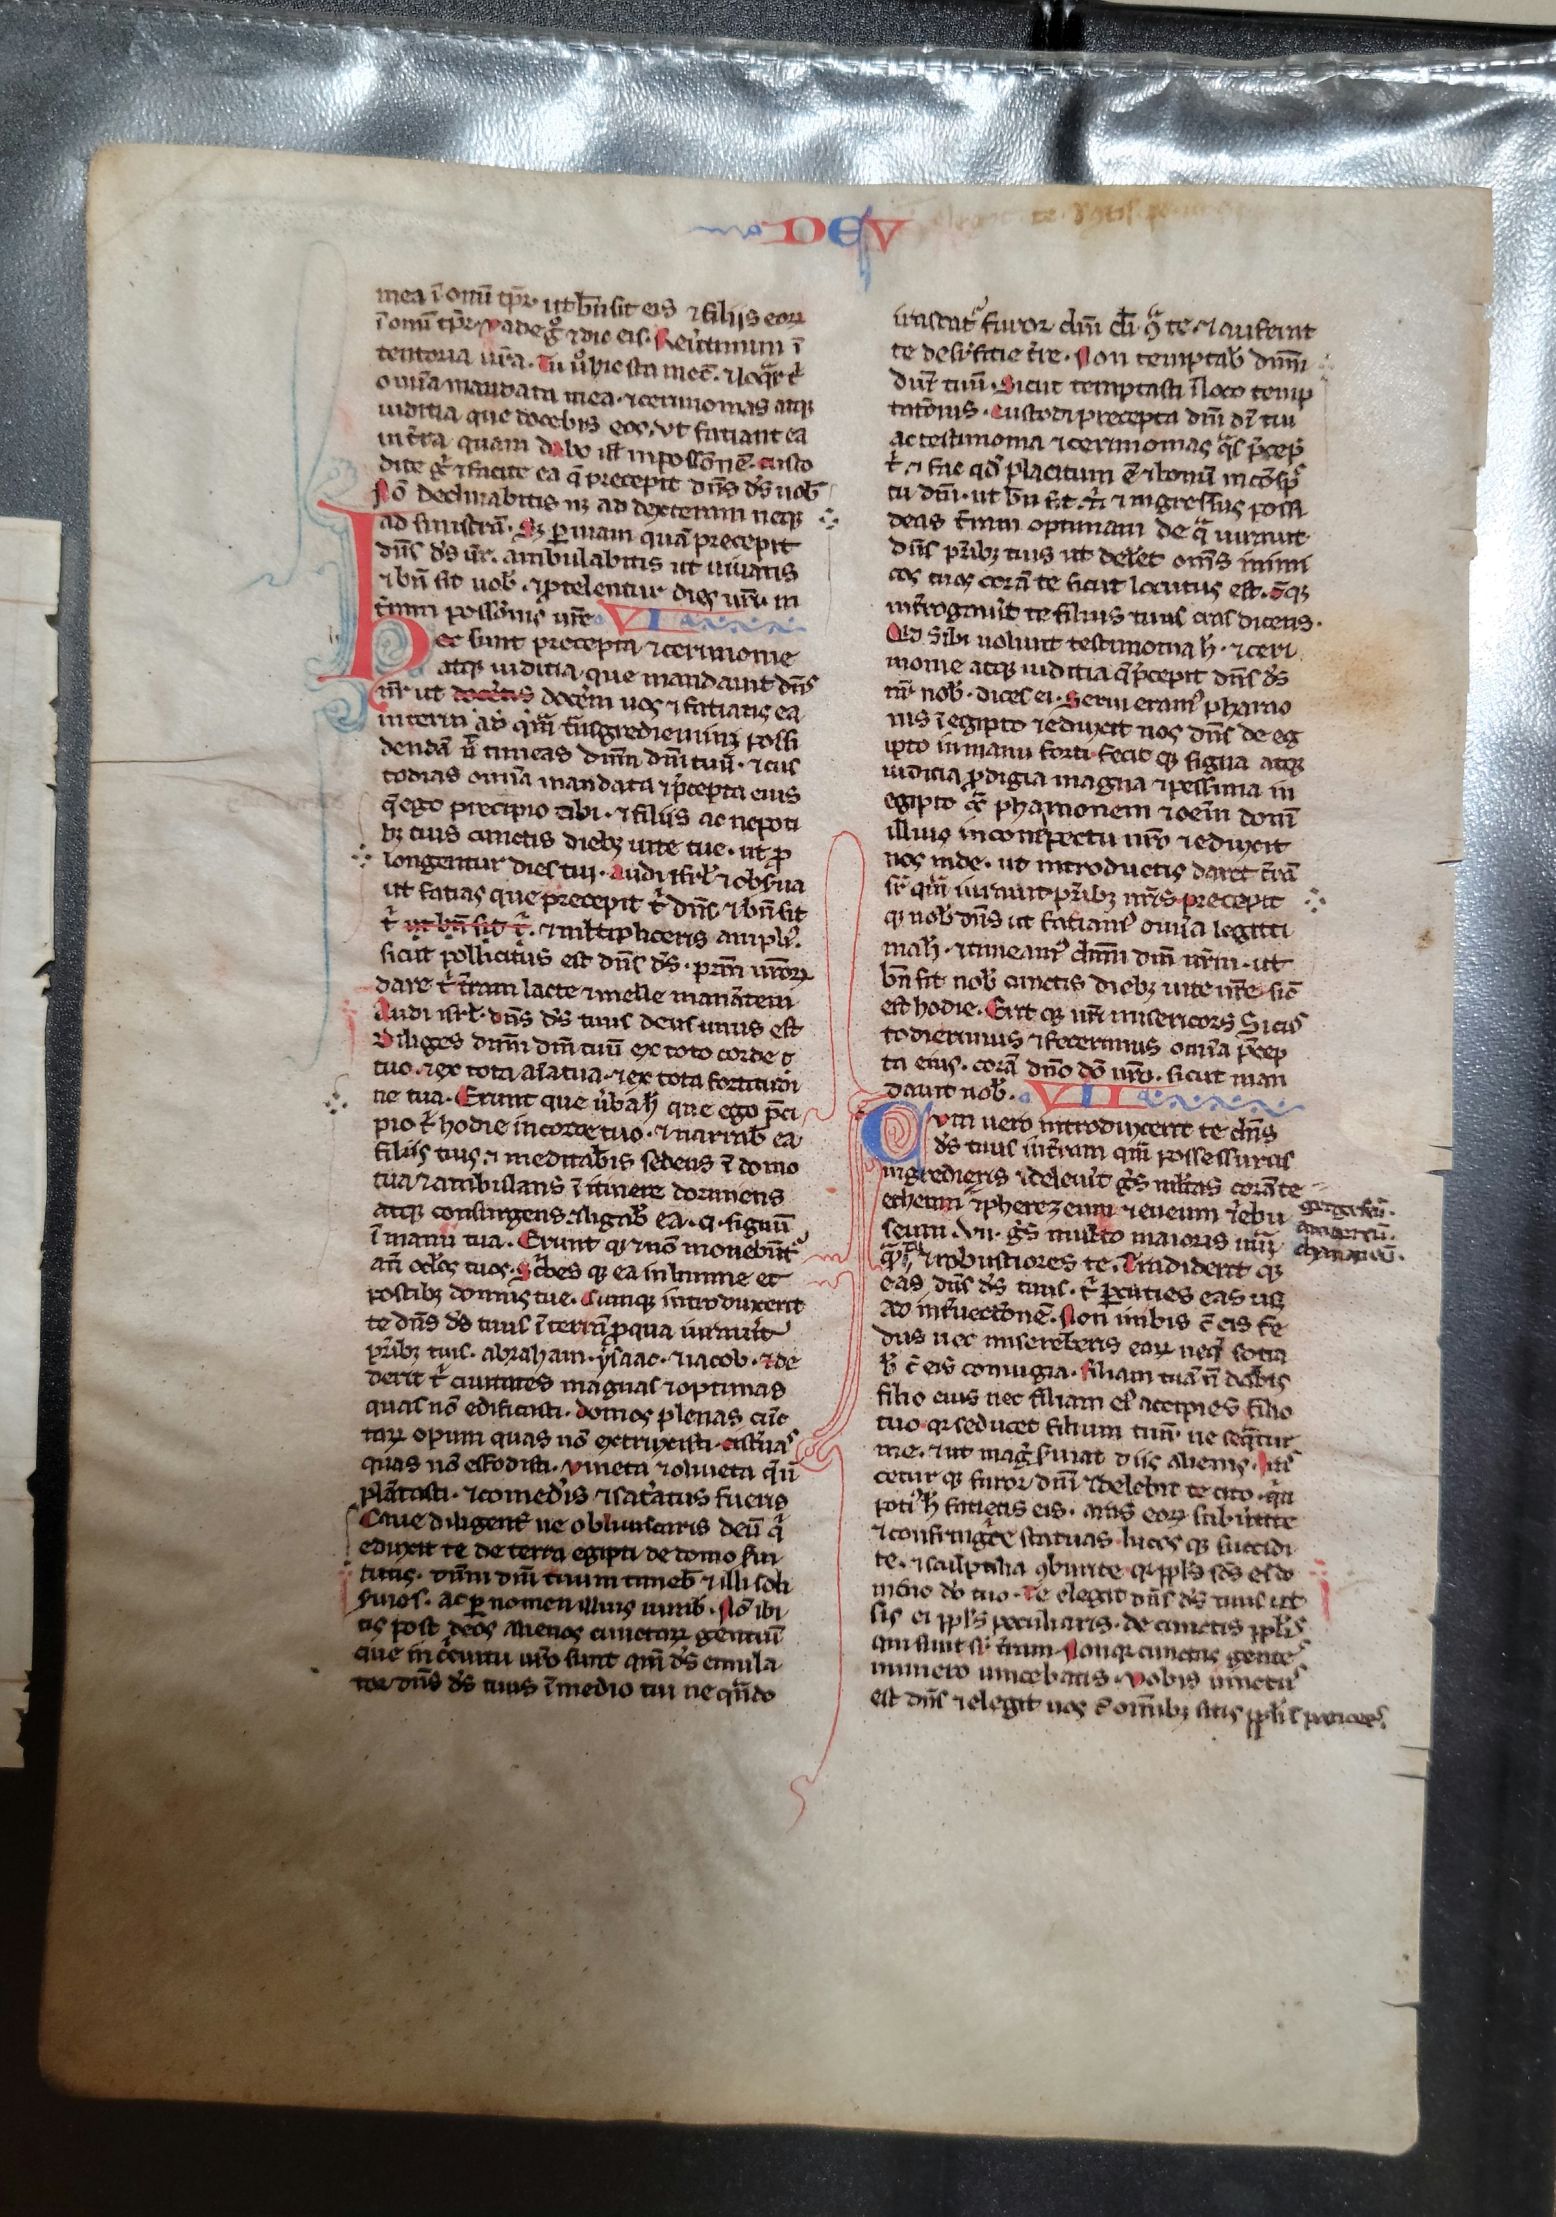 DEV
mea ī omī tp̄r ut bn̄ sit eis ⁊ filiis eoꝝ
ī omī tp̄r. Vade gͦ ⁊ dic eis. Reuertimini ī
tentoria ur̄a. Tu u̾ hic sta mec̄. ⁊ loqr̄ t̾
omīa mandata mea. ⁊ cerimonias atqꝫ
iuditia que docebis eos. ut fatiant ea
in tr̄a quam dabo ill̾ in possōnē. Custo
dite gͦ ⁊ facite ea q̄ precepit dn̄s ds̄ uob̾
Nō declinabitis nꝫ ad dexteram neqꝫ
ad sinistrā. Sꝫ ꝑ uiam quā precepit
dn̄s ds̄ ur̄. ambulabitis ut uiuatis
⁊ bn̄ sit uob̾. ⁊ ꝓtelentur dies ur̄i in
tr̄am possōnis ur̄e VI
Hec sunt precepta ⁊ cerimonie
atqꝫ iuditia que mandauit dn̄s
nr̄ ut docēis docēm uos ⁊ fatiatis ea
in terrā ad qm̄ tn̄sgredimini possi
dendā ut̄ timeas dn̄m dm̄ tuū. ⁊ cus
todias omīa mandata ⁊ p̄cepta eius
q̄ ego precipio tibi. ⁊ filiis ac nepoti
bꝫ tuis cunctis diebꝫ uite tue. ut ꝓ
longentur dies tui. Audi isrl̄ ⁊ obsꝰua
ut fatias que precepit t̾ dn̄s ⁊ bn̄ sit
t̾ ut bn̄ sit t̾. ⁊ mltipliceris ampli̾.
sicut pollicitus est dn̄s ds̄. prm̄ tuoꝝ
dare t̾ tr̄am lacte ⁊ melle manātem
Audi isrl̄. dn̄s ds̄ tuus deus unus est
Diliges dn̄m dm̄ tuū ex toto corde
tuo. ⁊ ex tota aīa tua. ⁊ ex tota fortitudi
ne tua. Erunt que ūba h̄ que ego p̄ci
pio t̾ hodie in corde tuo. ⁊ narrab̾ ea
filiis tuis. ⁊ meditab̾is sedens ī domo
tua ⁊ ambulans ī itinere dormiens
atqꝫ consurgens. ⁊ ligab̾ ea. q̾ signū
ī manu tua. Erunt qꝫ ⁊ nō mouebūt̾
an̄ oclōs tuos. Sc̾bes qꝫ ea in limine et
postibꝫ domus tue. Cumqꝫ introduxerit
te dn̄s ds̄ tuus ī terrā ꝓ qua iurauit
pr̄ibꝫ tuis. abraham. ysaac. ⁊ iacob. ⁊ de
derit t̾ ciuitates magnas ⁊ optimas
quas nō edificasti. domos plenas cūc
taꝝ opum quas nō extruxisti. cist̾nas
quas nō effodisti. uineta ⁊ oliueta q̄ n̄
plātasti. ⁊ comedis ⁊ sat̾atus fueris
Caue diligent̾ ne obliuiscaris deū q̾
eduxit te de terra egipti de domo sui
tutis. Dn̄m dm̄ tuum timeb̾ ⁊ illi soli
suies. ac ꝑ nomen illius iurab̾. Nō ibi
tis post deos alienos cunctaꝝ gentiū
que in c̾cuitu ur̄o sunt qm̄ ds̄ emula
tor dn̄s ds̄ tuus ī medio tui ne qn̄do
irascat̾ furor dn̄i di̾ q̾ te ⁊ auferat
te de suꝑficie tr̄e. Non temptab̾ dn̄m
dm̄ tuū. Sicut temptasti ī loco temp
tatōnis. Custodi precepta dn̄i di̾ tui
ac testimonia ⁊ cerimonias q̾s p̄cep̾
t̾. ⁊ fac qd̾ placitum ē ⁊ bonū in cōsp̄
tu dn̄i. ut bn̄ sit t̾. ⁊ ingressus possi
deas tr̄am optimam de q̾ iurauit
dn̄s pr̄ibꝫ tuis ut delet̾ omīs inimi
cos tuos corā te sicut locutus est. Cūqꝫ
int̾rogauit te filius tuus cras dicens.
Qid sibi uolunt testimonia h̄. ⁊ ceri
monie atqꝫ iuditia q̄ p̄cepit dn̄s ds̄
nr̄ nob̾. dices ei. Serui eram̾ pharao
nis ī egipto ⁊ eduxit nos dn̄s de eg
ipto in manu forti fecit qꝫ signa atqꝫ
iuditia ꝓdigia magna ⁊ pessima in
egipto q̾ pharaonem ⁊ oēm domū
illius in conspectu nr̄o ⁊ eduxit
nos inde. ut introductis daret tr̄ā
sr̄ qm̄ iurauit pr̄ibꝫ nr̄is precepit
qꝫ nob̾ dn̄s ut fatiam̾ omīa legitti
ma h̄. ⁊ timeam̾ dn̄m dm̄ nr̄m. ut
bn̄ sit nob̾ cunctis diebꝫ uite nr̄e sic̄
est hodie. Erit qꝫ nr̄i misericors si cus
todierimus ⁊ fecerimus omīa p̄cep
ta eius. corā dn̄o dō nr̄o. sicut man
dauit nob̾. VII
Cum uero introduxerit te dn̄s
ds̄ tuus in tr̄am qm̄ possessurus
ingredieris ⁊ deleuit gn̄s mltas corā te
etheum ⁊ pherezeum ⁊ eueum ⁊ iebu
gergeseū.
amorreū.
chananeū.
seum .vii. gn̄s multo maioris nūi
q̾ tu ⁊ robustiores te. Tradiderit qꝫ
eas dn̄s ds̄ tuus. t̾ ꝑcuties eas usqꝫ
ad int̾nectionē. Non inibis c̄ eis fe
dus nec misereberis eaꝝ neqꝫ sotia
b̾ c̄ eis coniugia. Filiam tuā n̄ dab̾is
filio eius nec filiam ei̾ accipies filio
tuo. qꝛ seducet filium tuū ne seq̾tur
me. ⁊ ut mag̾ suiat diis alienis. Iras
cetur qꝫ furor dn̄i ⁊ delebit te cito. q̾n
poti̾ h̄ fatietis eis. aras eoꝝ sub̾tite
⁊ confringite statuas lucos qꝫ succidi
te. ⁊ sculptilia cōburite qꝛ ppl̄s scs̄ es do
mino dō tuo. Te elegit dn̄s ds̄ tuus ut
sis ei ppl̄s peculiaris. de cunctis ppl̄is
qui sunt sr̄ tr̄am. Non qꝛ cunctas gentes
numero uincebatis. Vobis iunctus
est dn̄s ⁊ elegit uos c̄ omībꝫ sitis ppl̄is pauciores.